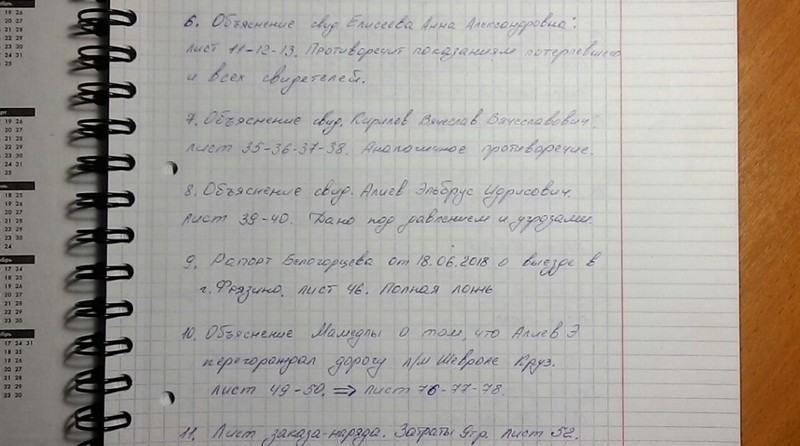 6. Объяснение свид. Елисеева Анна Александровна:
лист 11-12-13. Противоречит показаниям потерпевшего
и всех свидетелей.
7. Объяснение свид. Кирилев Вячеслав Вячеславович:
лист 35-36-37-38. Аналогичное противоречие.
8. Объяснение свид. Алиев Эльбрус Идрисович.
лист 39-40. Дано под давлением и угрозами.
9. Рапорт Белогорцева от 18.06.2018 о выезде в
г. Фрязино. лист 46. Полная
10. Объяснение Мамедлы о том, что Алиев Э
перегораждал дорогу л/м Шевроле Круз.
лист 49-50. ⇒ лист 76-77-78.
11. Лист заказа-наряда. Затраты лист 52.